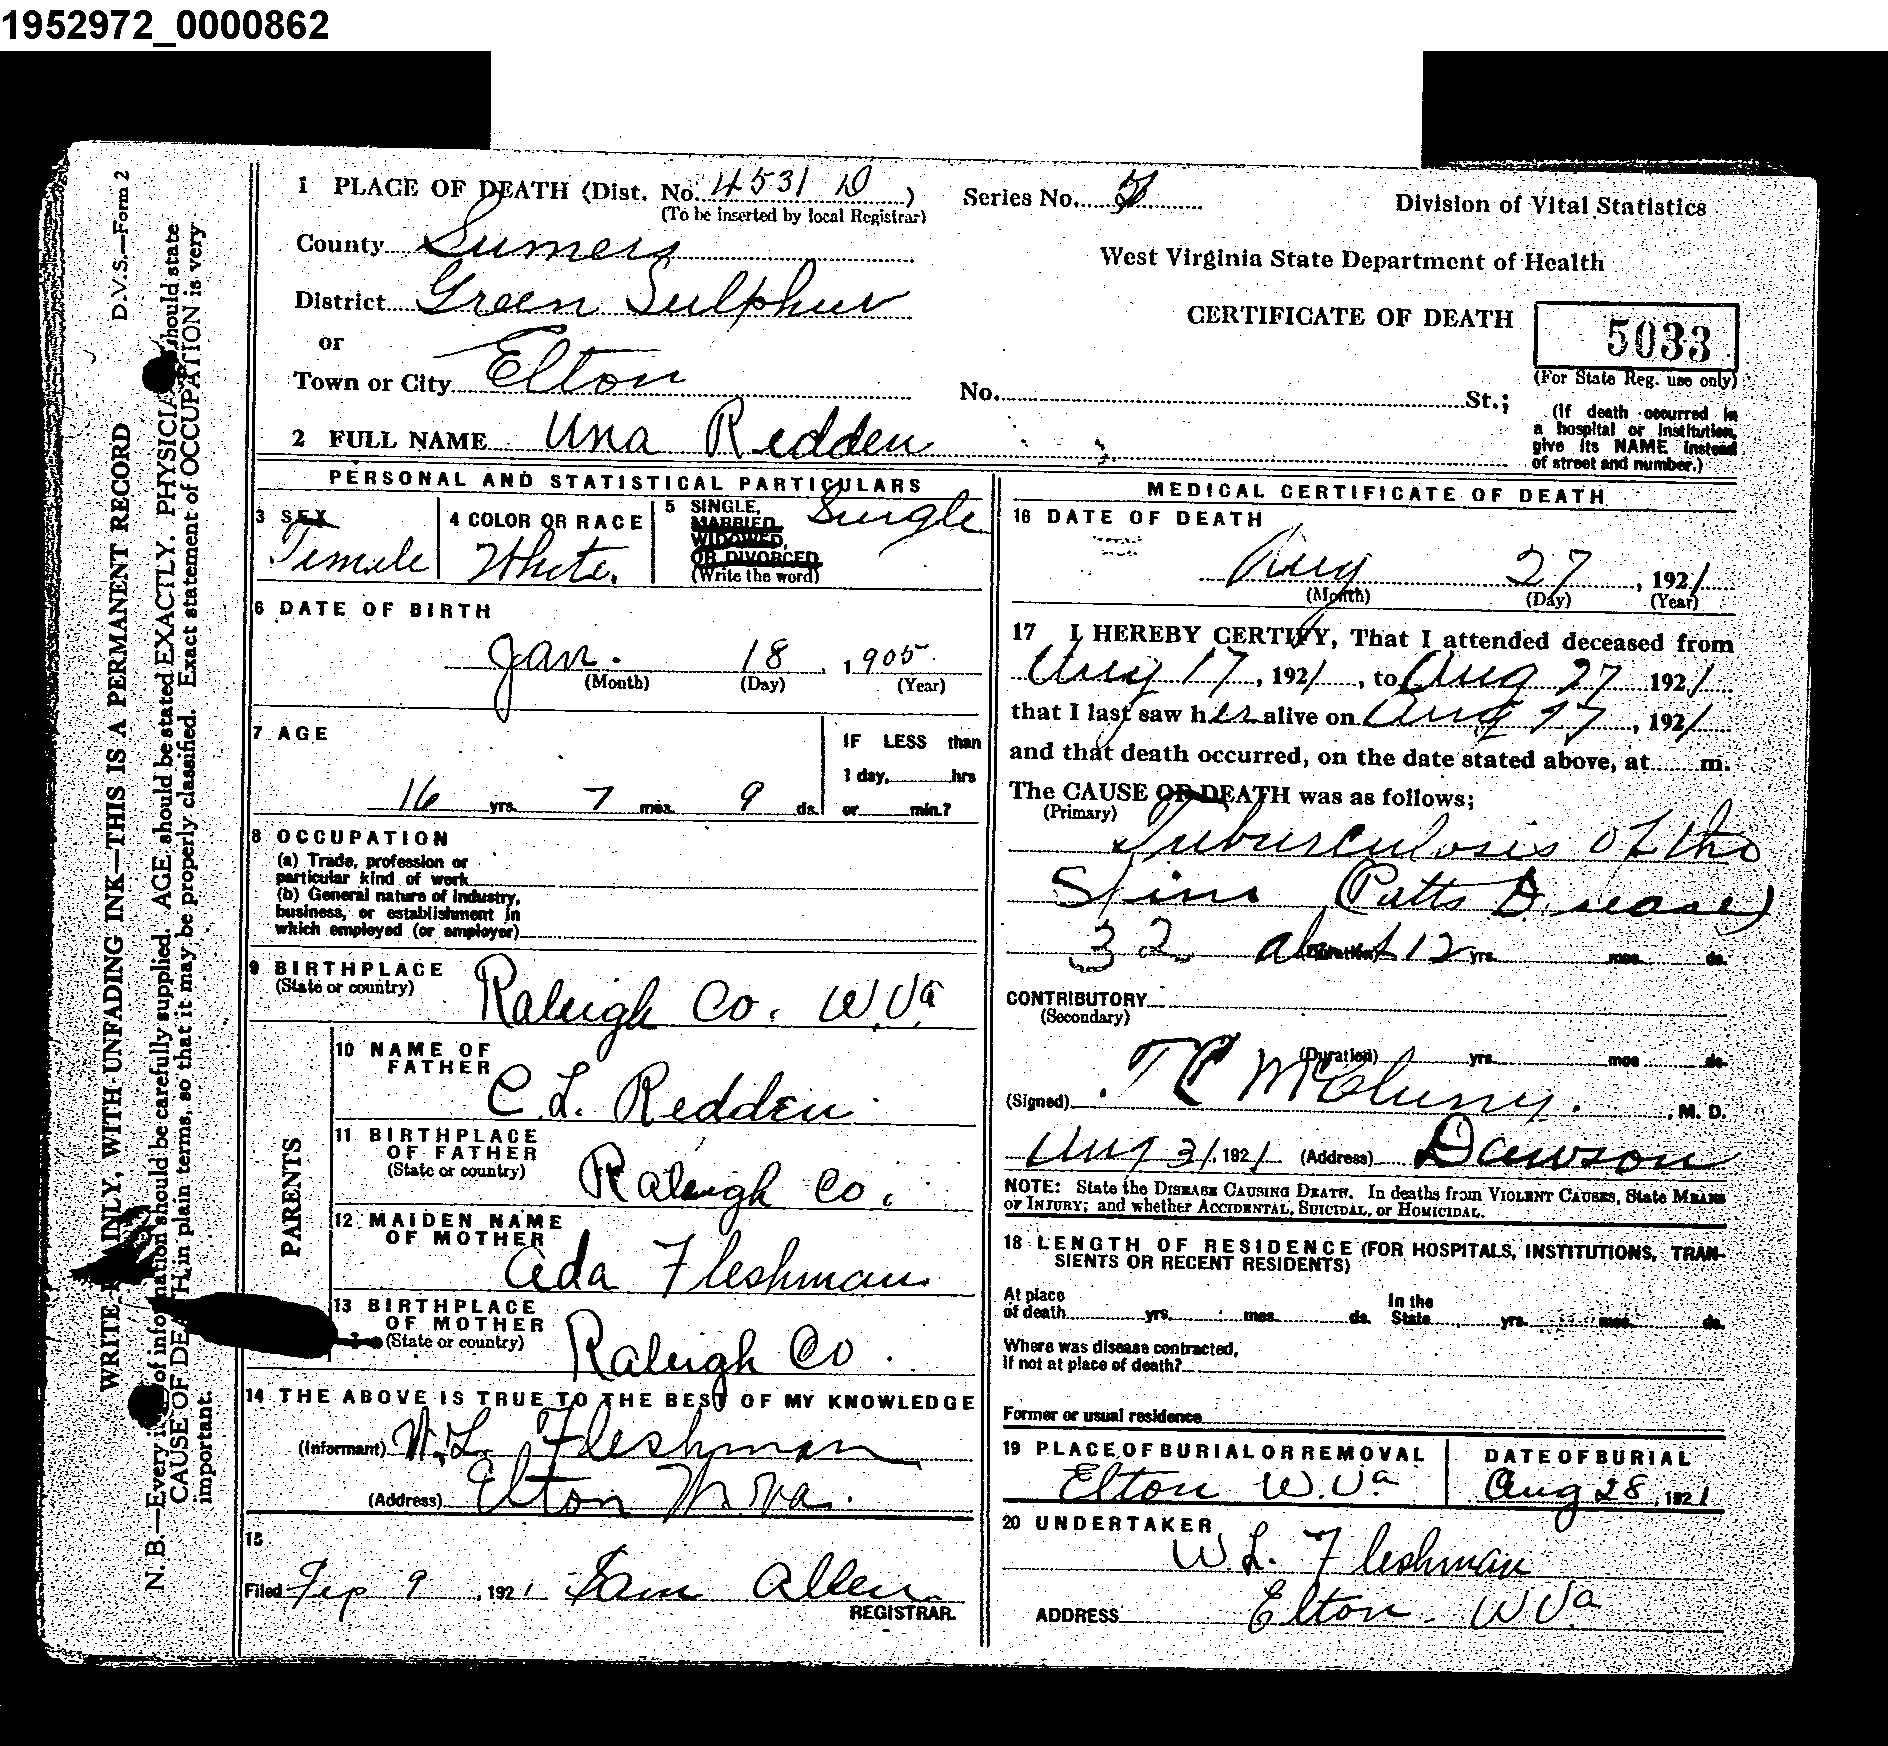 1952972_0000862
D.V.S.—Form 2
WRITE PLAINLY, WITH UNFADING INK—THIS IS A PERMANENT RECORD
N. B.—Every item of information should be carefully supplied. AGE should be stated EXACTLY. PHYSICIANS should state
CAUSE OF DEATH in plain terms, so that it may be properly classified. Exact statement of OCCUPATION is very
important.
1 PLACE OF DEATH (Dist. No. 4531 D )
(To be inserted by local Registrar)
Series No.
Division of Vital Statistics
County Sumers
West Virginia State Department of Health
District Green Sulphur
CERTIFICATE OF DEATH
5033
(For State Reg. use only)
or
Town or City Elton
No. St.;
(If death occurred in
a hospital or institution,
give its NAME instead
of street and number.)
2 FULL NAME Una Redden
PERSONAL AND STATISTICAL PARTICULARS
3 SEX
Female
4 COLOR OR RACE
White.
5 SINGLE,
MARRIED,
WIDOWED,
OR DIVORCED
(Write the word)
Single
6 DATE OF BIRTH
Jan. 18 , 1905
(Month) (Day) (Year)
7 AGE
16 yrs. 7 mos. 9 ds.
IF LESS than
1 day, hrs
or min.?
8 OCCUPATION
(a) Trade, profession or
particular kind of work
(b) General nature of industry,
business, or establishment in
which employed (or employer)
9 BIRTHPLACE
(State or country)
Raleigh Co. W.Va
PARENTS
10 NAME OF
FATHER
C. L. Redden
11 BIRTHPLACE
OF FATHER
(State or country)
Raleigh Co.
12 MAIDEN NAME
OF MOTHER
Ada Fleshman
13 BIRTHPLACE
OF MOTHER
(State or country)
Raleigh Co.
14 THE ABOVE IS TRUE TO THE BEST OF MY KNOWLEDGE
(Informant) W. L. Fleshman
(Address) Elton W Va.
15
Filed Sep 9 , 1921 Sam Allen
REGISTRAR.
MEDICAL CERTIFICATE OF DEATH
16 DATE OF DEATH
Aug 27 , 1921
(Month) (Day) (Year)
17 I HEREBY CERTIFY, That I attended deceased from
Aug 17, 1921, to Aug 27 1921
that I last saw her alive on Aug 27, 1921
and that death occurred, on the date stated above, at m.
The CAUSE OF DEATH was as follows;
(Primary)
Tuburculosis of the
Spine (Patts Disease)
32 about 12 yrs. mos. ds.
(Duration)
CONTRIBUTORY
(Secondary)
(Duration) yrs. mos. ds.
(Signed) T C McClung. , M. D.
Aug 31, 1921 (Address) Dawson
NOTE: State the DISEASE CAUSING DEATH. In deaths from VIOLENT CAUSES, State MEANS
OF INJURY; and whether ACCIDENTAL, SUICIDAL, or HOMICIDAL.
18 LENGTH OF RESIDENCE (FOR HOSPITALS, INSTITUTIONS, TRAN-
SIENTS OR RECENT RESIDENTS)
At place
of death yrs. mos. ds.
In the
State yrs. mos. ds.
Where was disease contracted,
if not at place of death?
Former or usual residence
19 PLACE OF BURIAL OR REMOVAL
Elton W.Va
DATE OF BURIAL
Aug 28, 1921
20 UNDERTAKER
W. L. Fleshman
ADDRESS Elton. W Va